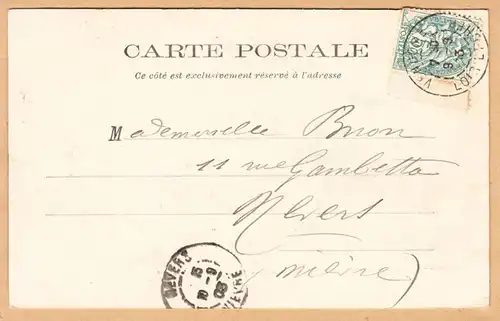 CARTE POSTALE
Ce côté est exclusivement réservé à l'adresse
Mademoiselle Brion
11 rue Gambetta
Nevers
(Nièvre)
NEVERS
15
10 -9
03
NIEVRE